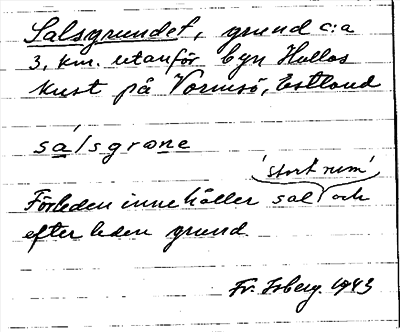 Salsgrundet, grund c:a
3. km. utanför byn Hullos
kust på Vormsö, Estland
sálsgrone
'stort rum'
Förleden innehåller sal och
efterleden grund.
Fr. Isberg. 1943